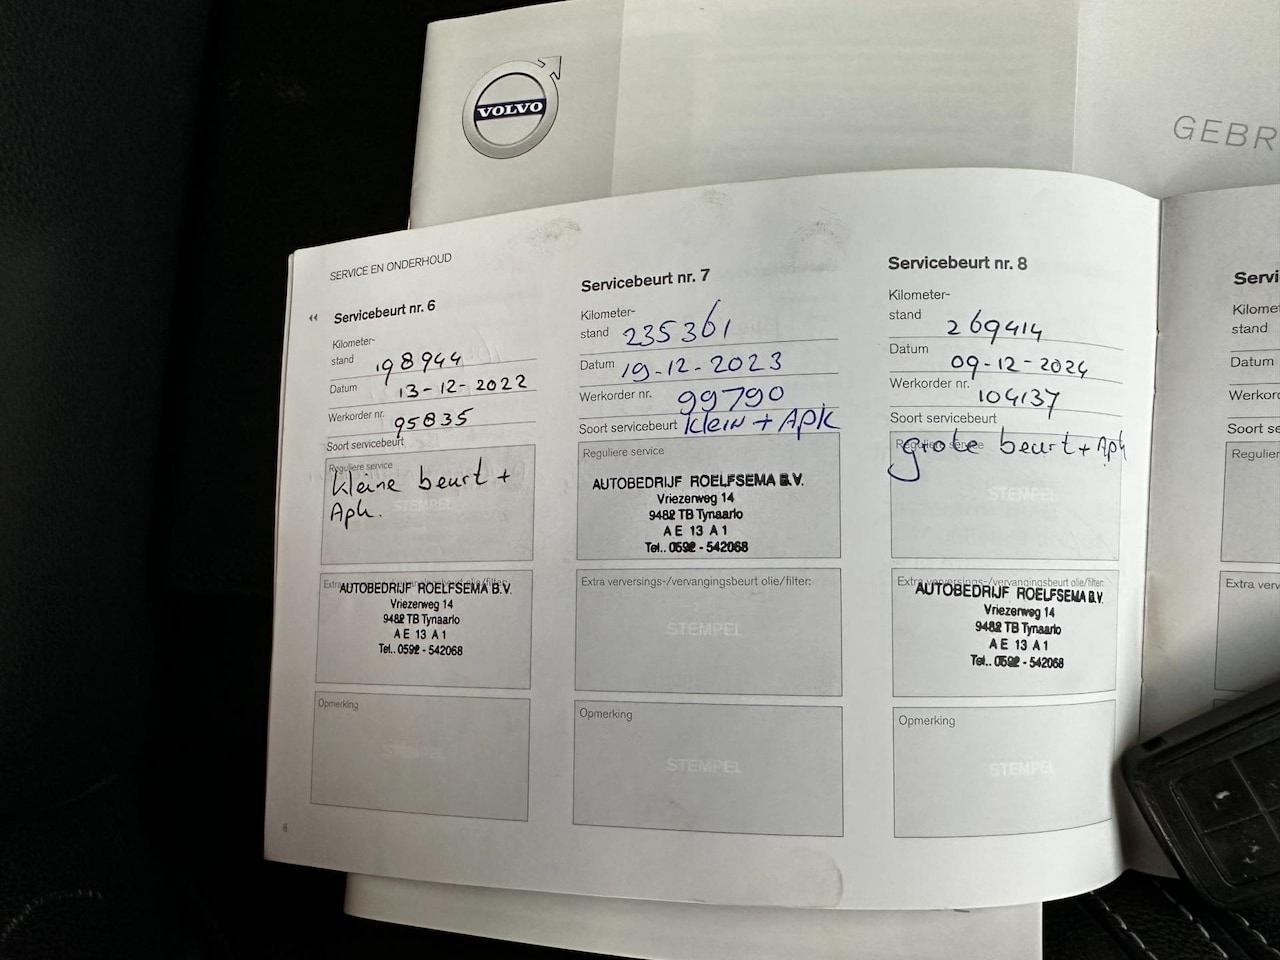 VOLVO
GEBR
SERVICE EN ONDERHOUD
Servicebeurt nr. 6
Kilometer-
stand 198944
Datum 13-12-2022
Werkorder nr. 95835
Soort servicebeurt
Reguliere service
kleine beurt +
Apk.
STEMPEL
Extra verversings-/vervangingsbeurt olie/filter:
AUTOBEDRIJF ROELFSEMA B.V.
Vriezerweg 14
9482 TB Tynaarlo
A E 13 A 1
Tel.. 0592 - 542068
Opmerking
STEMPEL
6
Servicebeurt nr. 7
Kilometer-
stand 235361
Datum 19-12-2023
Werkorder nr. 99790
Soort servicebeurt klein + Apk
Reguliere service
AUTOBEDRIJF ROELFSEMA B.V.
Vriezerweg 14
9482 TB Tynaarlo
A E 13 A 1
Tel.. 0592 - 542068
Extra verversings-/vervangingsbeurt olie/filter:
STEMPEL
Opmerking
STEMPEL
Servicebeurt nr. 8
Kilometer-
stand 269414
Datum 09-12-2024
Werkorder nr. 104137
Soort servicebeurt
Reguliere service
grote beurt + Apk
STEMPEL
Extra verversings-/vervangingsbeurt olie/filter:
AUTOBEDRIJF ROELFSEMA B.V.
Vriezerweg 14
9482 TB Tynaarlo
A E 13 A 1
Tel.. 0592 - 542068
Opmerking
STEMPEL
Servi
Kilomete
stand
Datum
Werkorc
Soort se
Regulier
Extra verv
Opmerki